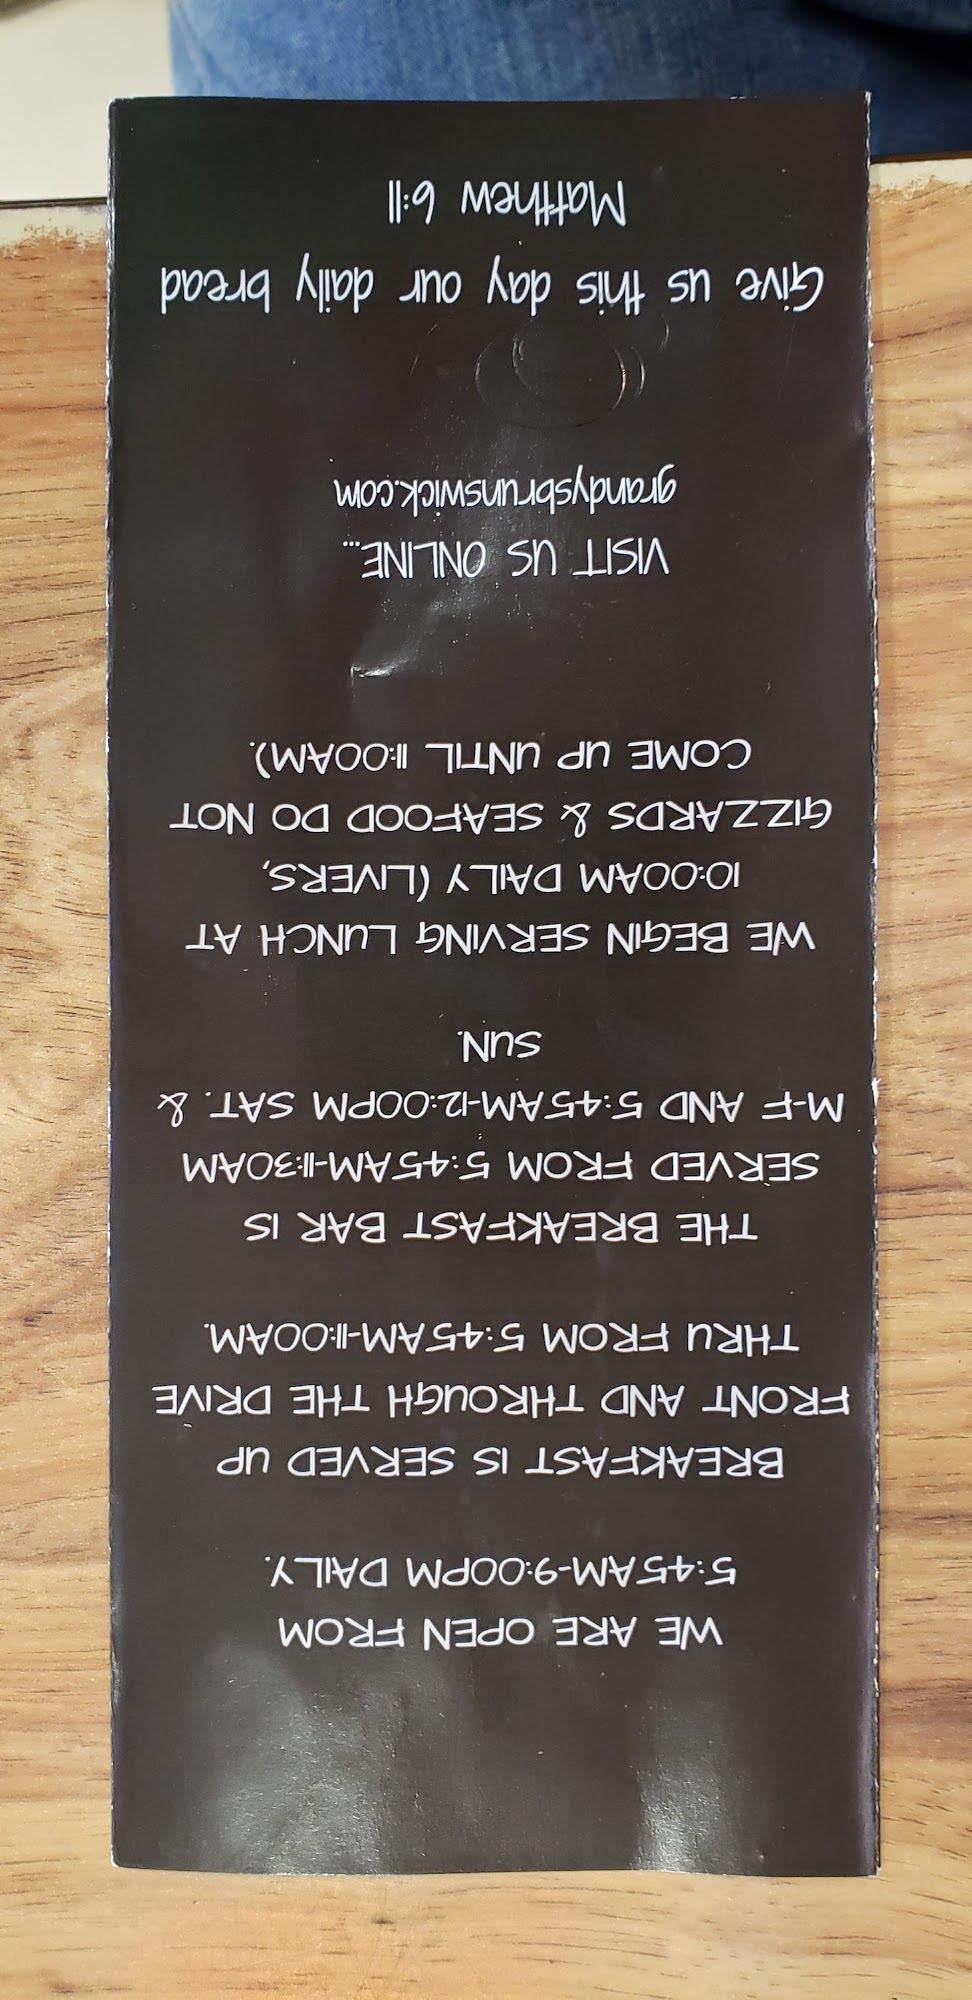 WE ARE OPEN FROM
5:45AM-9:00PM DAILY.
BREAKFAST IS SERVED UP
FRONT AND THROUGH THE DRIVE
THRU FROM 5:45AM-11:00AM.
THE BREAKFAST BAR IS
SERVED FROM 5:45AM-11:30AM
M-F AND 5:45AM-12:00PM SAT. &
SUN.
WE BEGIN SERVING LUNCH AT
10:00AM DAILY (LIVERS,
GIZZARDS & SEAFOOD DO NOT
COME UP UNTIL 11:00AM).
VISIT US ONLINE...
grandysbrunswick.com
Give us this day our daily bread
Matthew 6:11